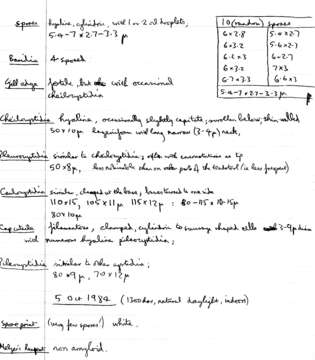 spores hyaline, cylindric, with 1 or 2 oil droplets,
5.4-7 x 2.7-3.3 µ
Basidia 4 spored
Gill edge fertile, but with occasional
cheilocystidia
10 (random) spores
6 x 2.8 5.4 x 2.7
6 x 3.2 5.6 x 2.3
6.2 x 3 6 x 2.7
6 x 3.2 7 x 3
6.7 x 3.3 6.6 x 3
5.4-7 x 2.7-3.3 µ
Cheilocystidia hyaline, occasionally slightly capitate, swollen below, thin walled
50 x 10 µ lageniform with long narrow (3-4µ) neck,
Pleurocystidia similar to cheilocystidia, often with encrustations at tip
50 x 8 µ, less
Caulocystidia similar, clamped at the base,
110 x 15, 105 x 11 µ 115 x 12 µ = 80-115 x 10-15 µ
80 x 10 µ
filamentous, clamped, cylindric to sausage shaped cells 3-9 µ
with numerous hyaline pileocystidia,
Pileocystidia similar to other cystidia,
80 x 9 µ, 70 x 12 µ
5 Oct 1984 (1300 hrs, natural daylight, indoors)
Spore print (very few spores!) white.
Melzer's Reagent non amyloid.